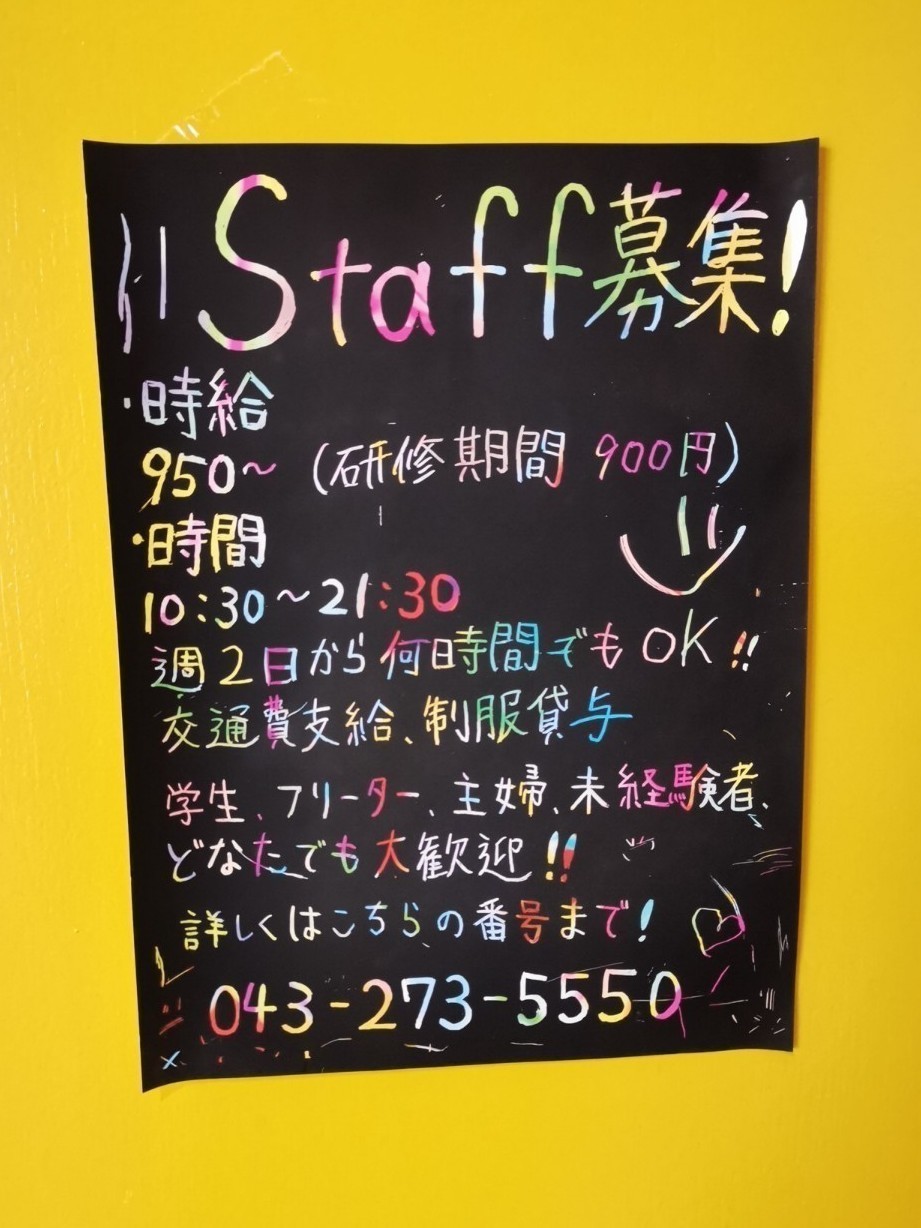 Staff募集!
・時給
950～ (研修期間 900円)
・時間
10:30～21:30
週2日から何時間でもOK!!
交通費支給、制服貸与
学生、フリーター、主婦、未経験者、
どなたでも大歓迎!!
詳しくはこちらの番号まで!
043-273-5550